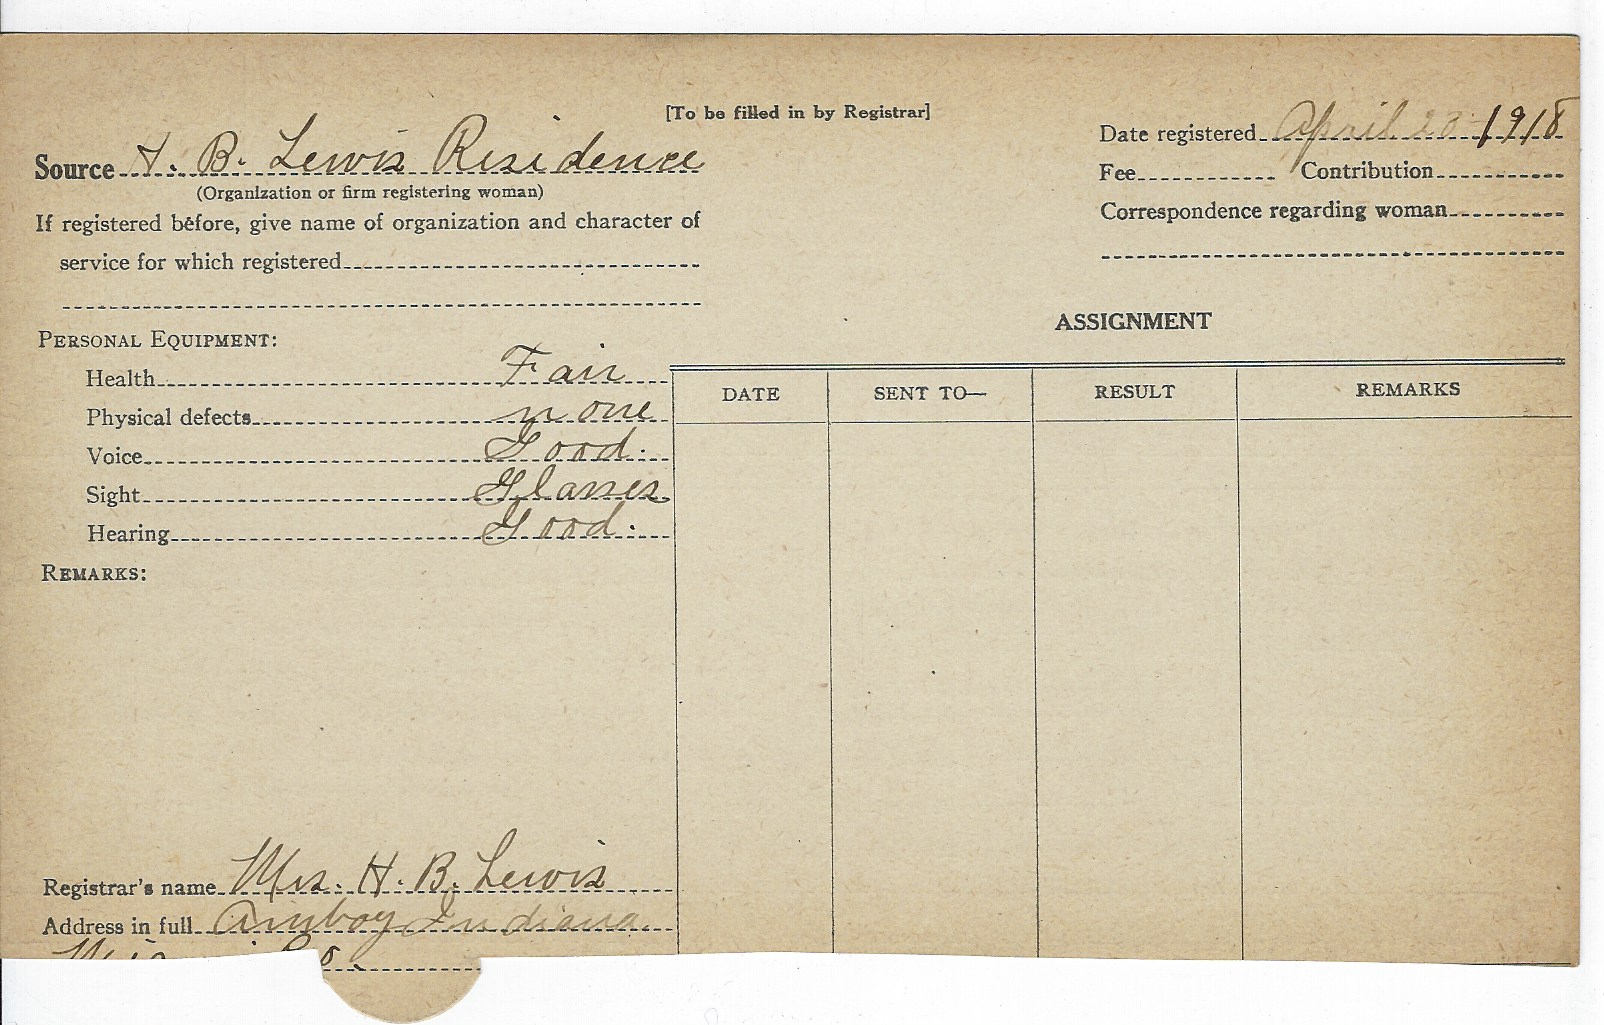 [To be filled in by Registrar]
Source H. B. Lewis Residence
(Organization or firm registering woman)
If registered before, give name of organization and character of
service for which registered
Date registered April 20 1918
Fee Contribution
Correspondence regarding woman
PERSONAL EQUIPMENT:
Health Fair
Physical defects none
Voice Good.
Sight Glasses
Hearing Good.
REMARKS:
ASSIGNMENT
DATE SENT TO— RESULT REMARKS
Registrar's name Mrs. H. B. Lewis
Address in full Amboy Indiana
Co.